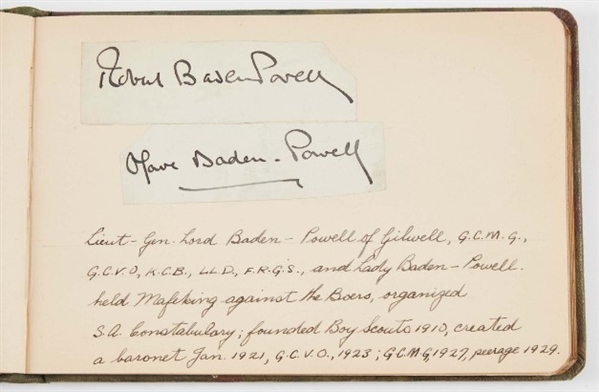 Robert Baden Powell
Olave Baden-Powell
Lieut-Gen. Lord Baden-Powell of Gilwell, G.C.M.G.,
G.C.V.O, K.C.B., LL.D., F.R.G.S., and Lady Baden-Powell.
held Mafeking against the Boers, organized
S.A. Constabulary; founded Boy Scouts 1910, created
a baronet Jan. 1921, G.C.V.O., 1923; G.C.M.G, 1927, peerage 1929.